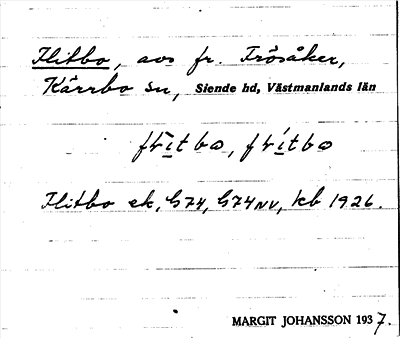 Flitbo, avs fr. Frösåker,
Kärrbo sn, Siende hd, Västmanlands län
Flitbo ek, G74, G74NV, kb 1926.
MARGIT JOHANSSON 1937.